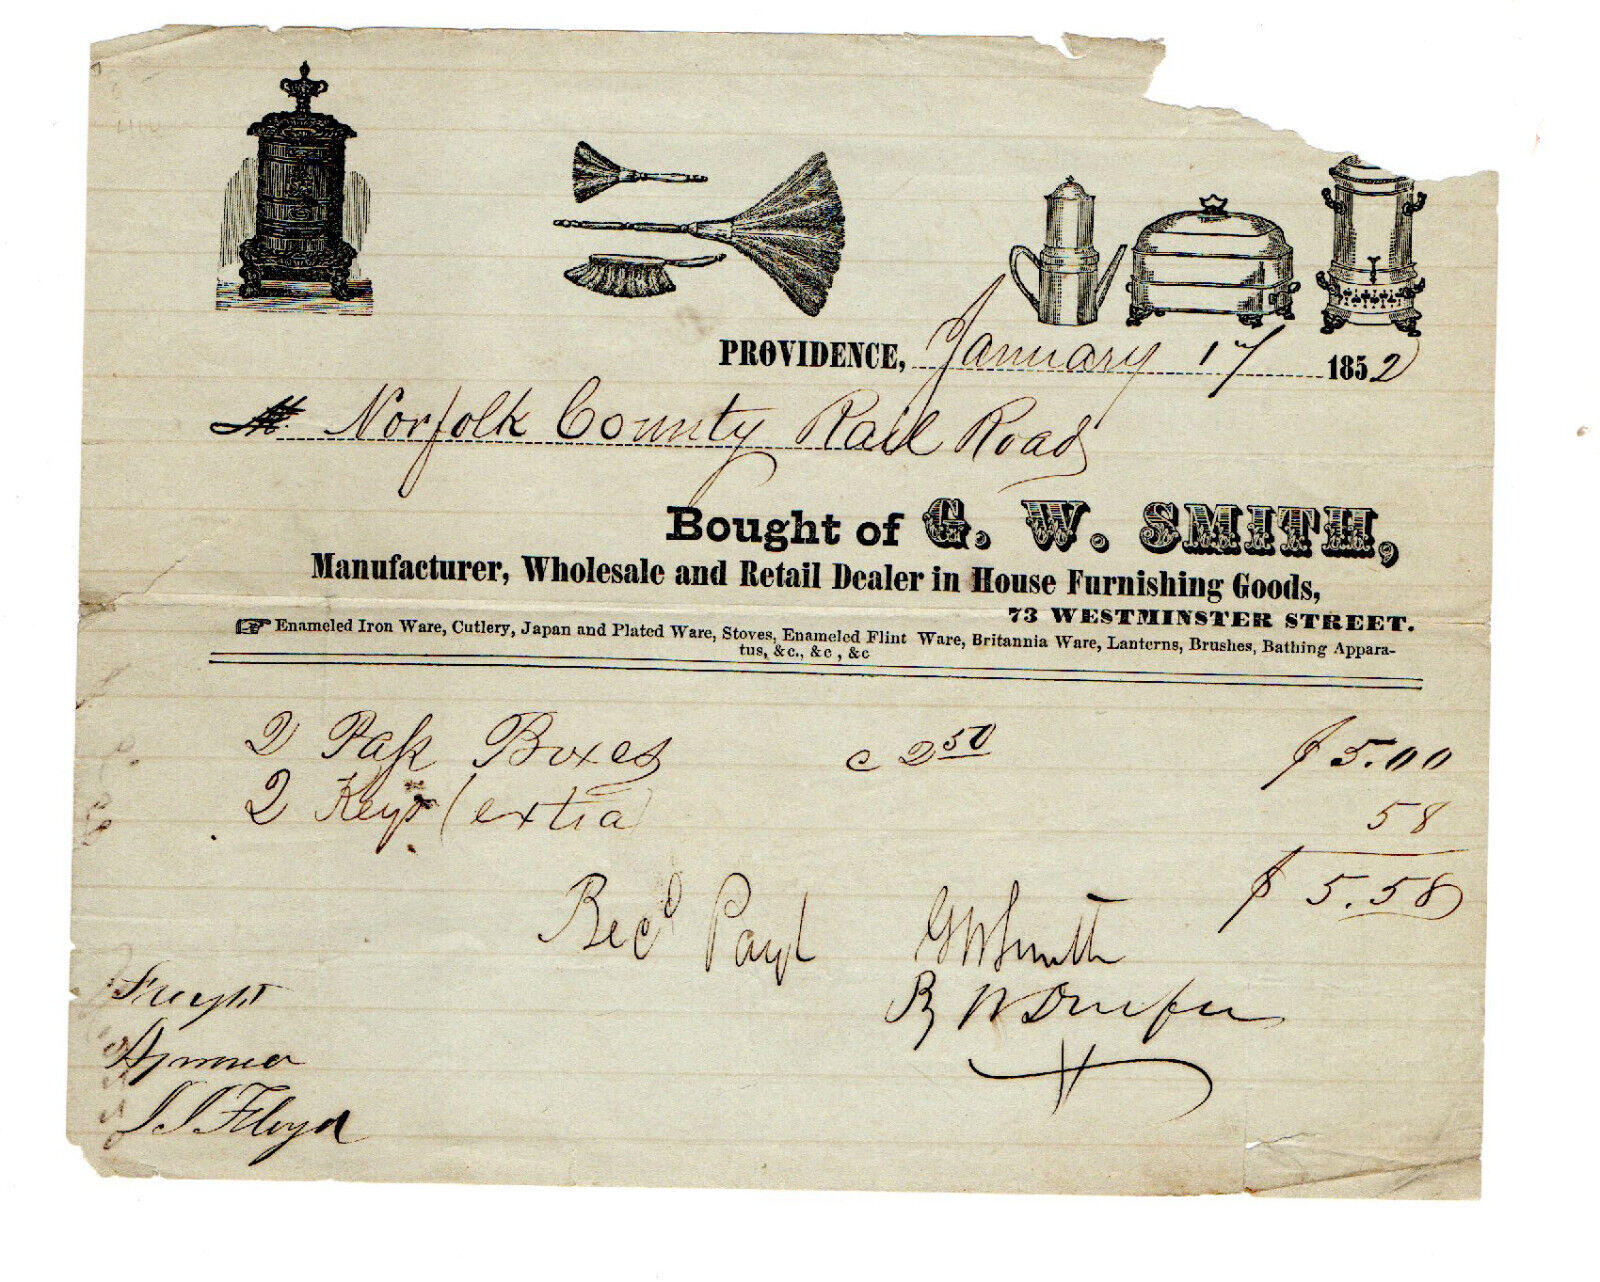 PROVIDENCE, January 17 1852
M. Norfolk County Rail Road
Bought of G. W. SMITH,
Manufacturer, Wholesale and Retail Dealer in House Furnishing Goods,
73 WESTMINSTER STREET.
☞ Enameled Iron Ware, Cutlery, Japan and Plated Ware, Stoves, Enameled Flint Ware, Britannia Ware, Lanterns, Brushes, Bathing Appara-
tus, &c., &c, &c
2 Paſs Boxes c 2 50 $ 5.00
2 Keys (extra) 58
$ 5.58
Recd Payt GW Smith
By W
Freight
J J Floyd